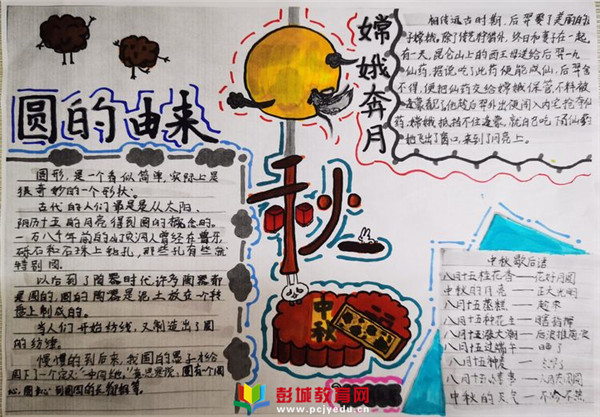 圆的由来
圆形，是一个看似简单，实际上是
很奇妙的一个形状。
古代的人们最早是从太阳，
阴历十五的月亮得到圆的概念的。
一万八千年前的山顶洞人曾经在兽牙
砾石和石珠上钻孔，那些孔有些就
特别圆。
以后到了陶器时代许多陶器都
是圆的，圆的陶器是泥土放在个转
盘上制成的。
当人们开始纺线，又制造出了圆
的纺锤。
慢慢的到后来，我国的墨子才给
圆下了一个定义"一中同长"。
嫦娥奔月
相传远古时期，后羿娶了美丽的
妻子嫦娥。除了传艺狩猎外，终日和妻子在一起，
有一天，昆仑山上的西王母送给后羿一丸
仙药，据说吃了此药便能成仙，后羿舍
不得，便把仙药交给嫦娥保管不料被
逢蒙
药，嫦娥抵挡不住逢蒙，就自己吃下仙药
飞出了窗口，来到了月亮上。
秋
中秋
中秋歇后语
八月十五桂花香——花好月圆
中秋的月亮——正大光明
八月十五蒸糕——趁早
八月十五种花生——瞎指挥
八月十五涨大潮
八月十五过端午——晚了
八月十五
八月十五
中秋的天气——不冷不热
彭城教育网
www.pcjyedu.cn